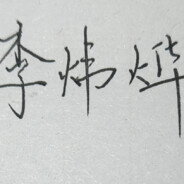 李炜烨